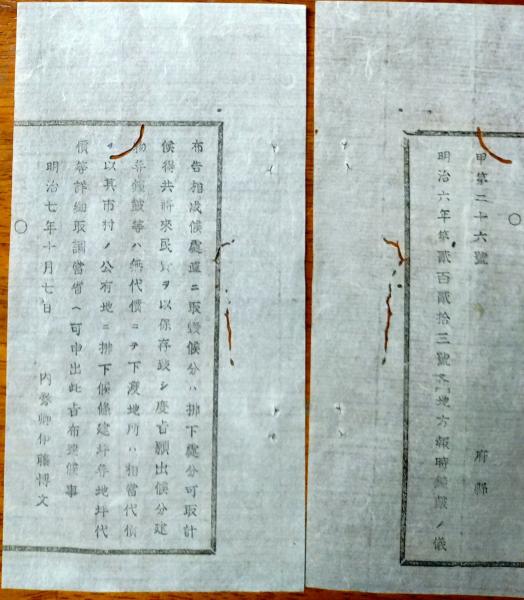 甲第二十六號
府縣
明治六年第貳百貳拾三號各地方報時鐘皷ノ儀
布告相成候處速ニ取毀候分ハ排下處分可取計
候得共將來民費ヲ以保存致シ度旨願出候分建
物并鐘皷等ハ無代價ニテ下渡地所ハ相當代價
ヲ以其市村ノ公有地ニ排下候條建坪并地坪代
價等詳細取調當省ヘ可申出此旨布達候事
明治七年十月七日
内務卿伊藤博文